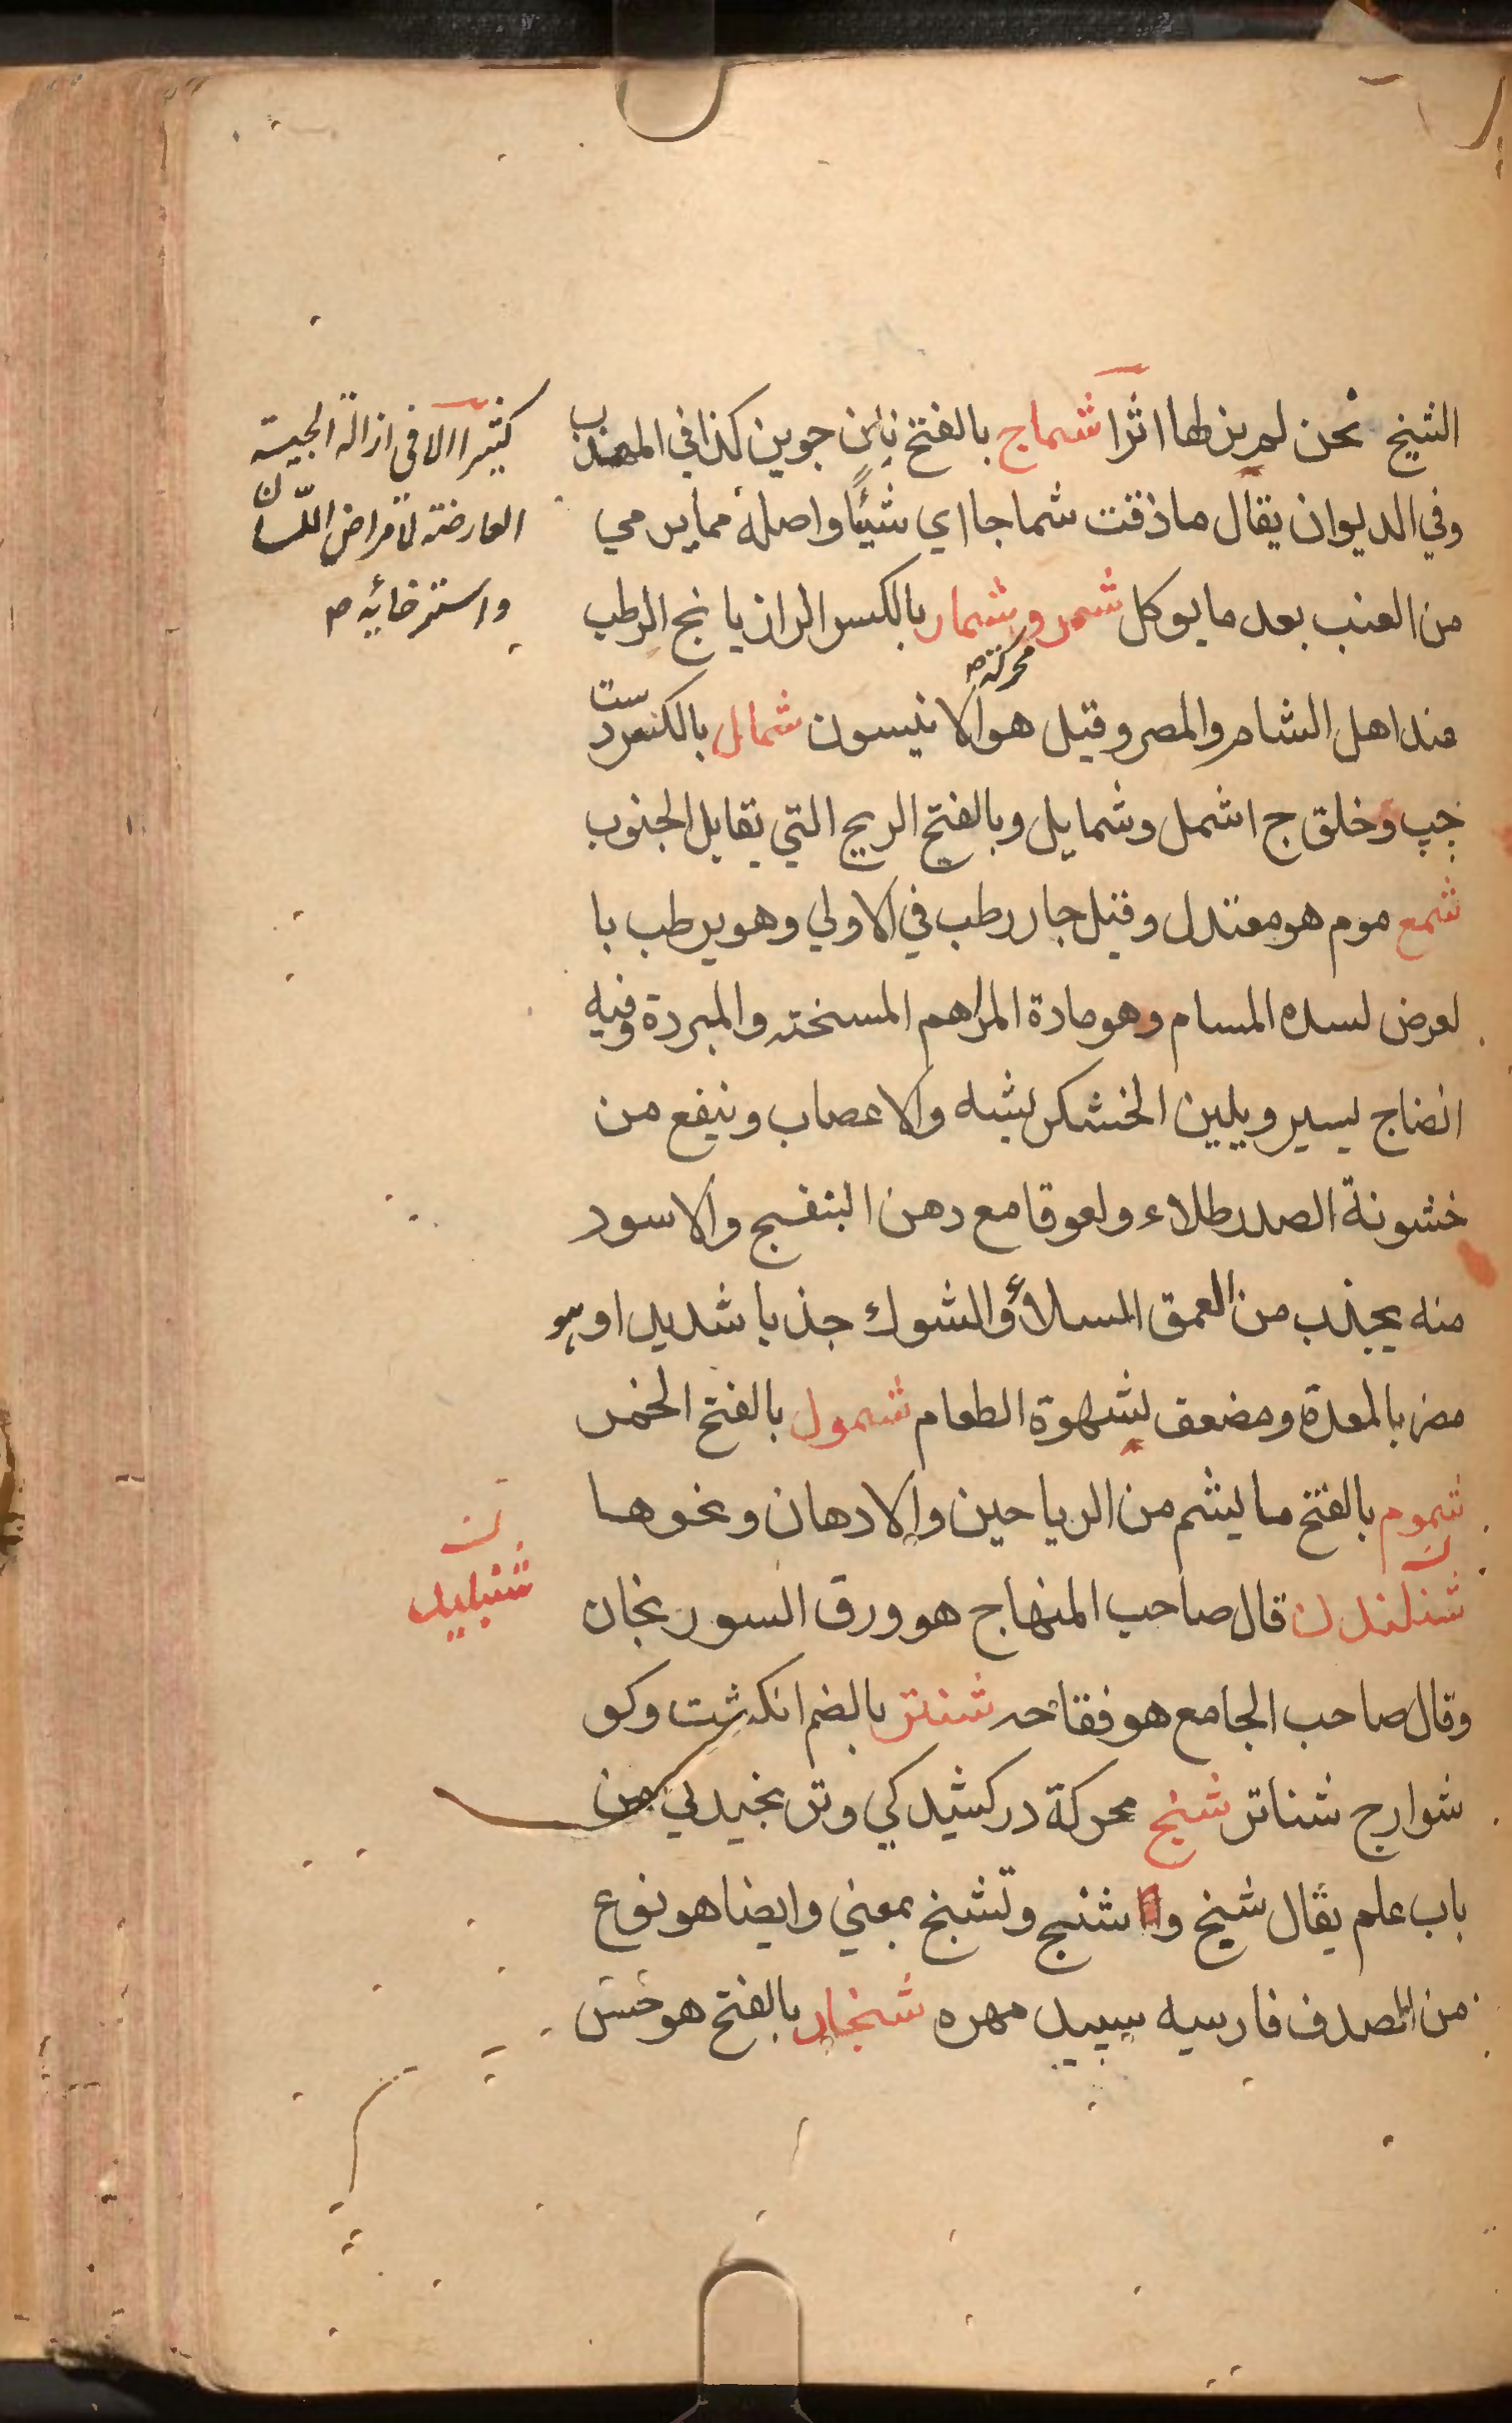 الشيخ نحن لم ير لها اثرا شماج بالفتح نان جوين كذا في المهذب
وفي الديوان يقال ما ذقت شماجا اي شيئا واصله مما يرمي
من العنب بعد ما يوكل شمر وشمار بالكسر الرازيانج الرطب
محركة صح
عند اهل الشام والمصر وقيل هو الانيسون شمال بالكسر دست
چپ وخلق ج اشمل وشمايل وبالفتح الريح التي تقابل الجنوب
شمع موم هو معتدل وقيل حار رطب في الاولي وهو يرطب با
لعرض لسده المسام وهو مادة المراهم المسخنه والمبردة وفيه
انضاج يسير ويلين الخشكريشه والاعصاب وينفع من
خشونة الصدر طلاء ولعوقا مع دهن البنفسج والاسود
منه يجذب من العمق السلاء والشوك جذبا شديدا وهو
مضر بالمعدة ومضعف لشهوة الطعام شمول بالفتح الخمر
شموم بالفتح ما يشم من الرياحين والادهان ونحوها
شنلندن قال صاحب المنهاج هو ورق السورنجان
وقال صاحب الجامع هو فقاحه شنتر بالضم انكشت وكو
شوارج شناتر شنج محركة در كشيدكي وترنجيدلي من
باب علم يقال شنج و اشنج وتشنج بمعني وايضا هو نوع
من الصدف فارسيه سپيد مهره شنجار بالفتح هو خس
كثيرا الا في ازالة الحبسة
العارضة لامراض اللسان
واسترخائه صح
ن
شنبليد